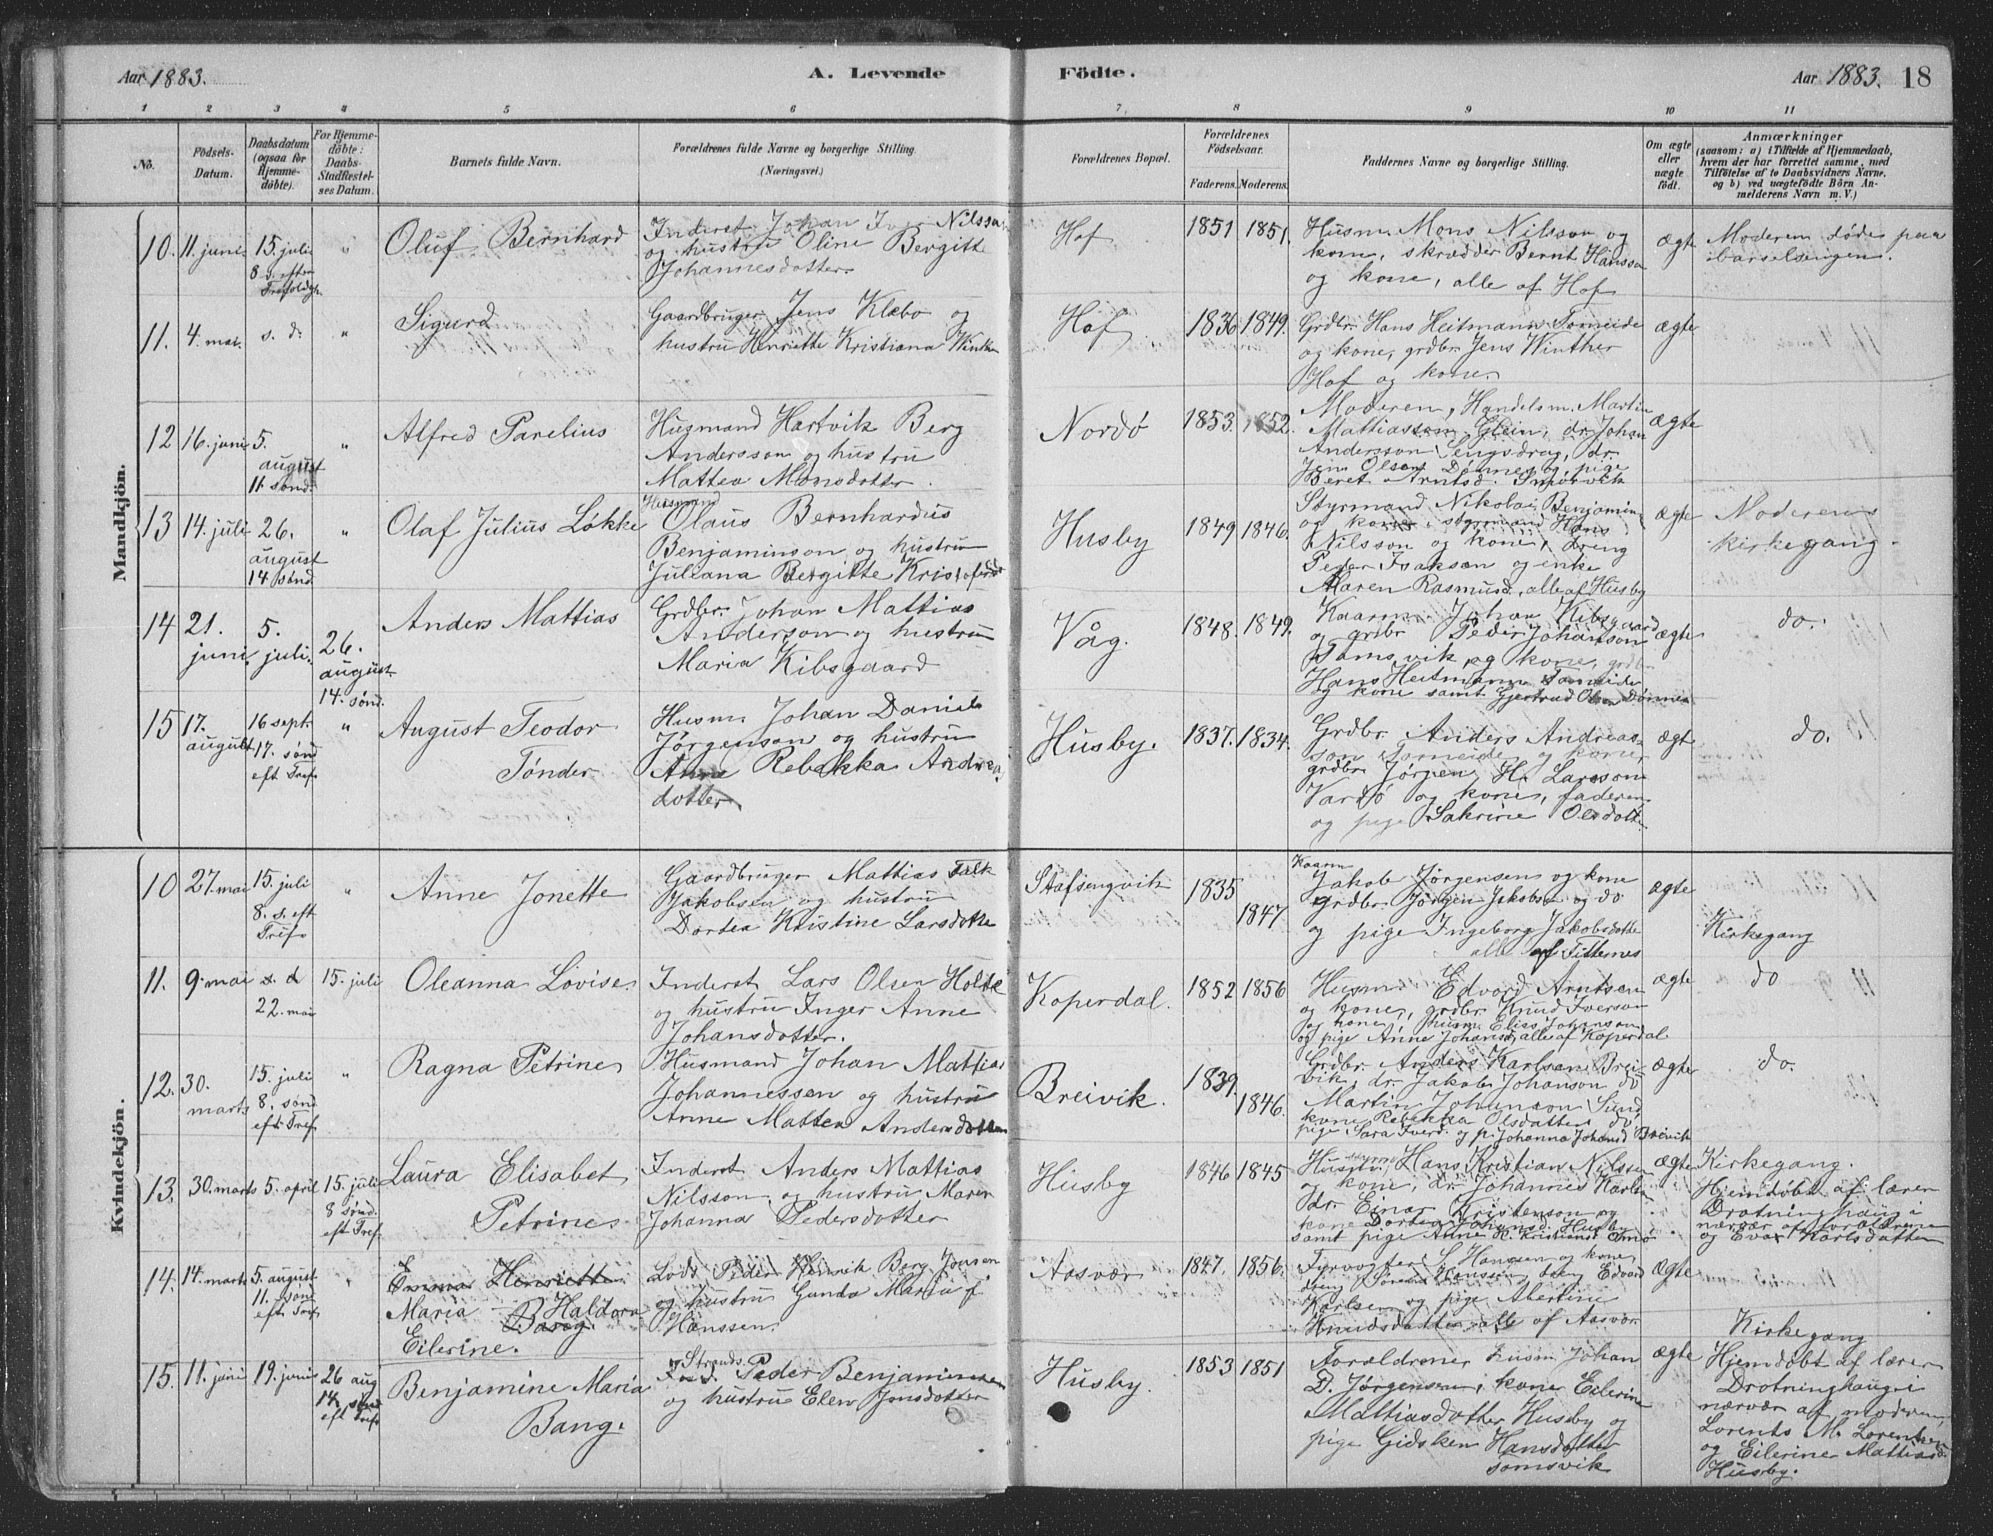 Aar 1883.
A. Levende Födte.
Aar 1883. 18
1 2 3 4 5 6 7 8 9 10 11
No.
Födsels-
Datum.
Daabsdatum
(ogsaa for
Hjemme-
döbte).
For Hjemme-
döbte:
Daabs-
Stadfæstel-
ses Datum.
Barnets fulde Navn.
Forældrenes fulde Navne og borgerlige Stilling.
(Næringsvei.)
Forældrenes Bopæl.
Forældrenes
Födselsaar.
Faderens. Moderens.
Faddernes Navne og borgerlige Stilling.
Om ægte
eller
uægte
födt.
Anmærkninger
(saasom: a) i Tilfælde af Hjemmedaab,
hvem der har forrettet samme, med
Tilföielse af to Daabsvidners Navne,
og b) ved uægtefödte Börn An-
melderens Navn m. V.)
Mandkjön.
10. 11. juni
15. juli
8 s. eftr
Trefoldigh.
"
Oluf Bernhard
Inderst Johan Nilsson
og hustru Oline Bergitte
Johannesdotter
Hof
1851 1851.
Husm. Mons Nilsson og
kone, skrædder Bernt Hansson
og kone, alle af Hof
ægte
Moderen døde paa
barselsengen.
11. 4. mai.
s. d.
"
Sigurd
Gaardbruger Jens Klæbo og
hustru Henriette Kristiana
Hof
1836 1849.
Grdbr. Hans Heitmann Tomeide
og kone, grdbr. Jens Winther
Hof og kone.
ægte
12 16. juni
5.
august
11. sønd.
"
Alfred Parelius
Husmand Hartvik Berg
Andersson og hustru
Mattea Monsdotter.
Nordø
1853. 1852.
Moderen, Handelsm. Martin
Mattiassen Glein, dr. Johan
Andersson Sengsdrag, dr.
Jens Olsen Dønnes og pige
Beret Arntsd.
ægte
13 14. juli
26.
august
14 sønd.
"
Olaf Julius Løkke
Husmand
Olaus Bernhardus
Benjaminson og hustru
Juliana Bergitte
Husby
1849 1846.
Styrmand Nikolai Benjamins
og kone, styrmand Hans
Nilsson og kone, dreng
Peder Isaksen og enke
Maren Rasmusd, alle af Husby
ægte
Moderens
kirkegang.
14 21.
juni
5.
juli.
26.
august
14. sønd.
Anders Mattias
Grdbr. Johan Mattias
Anderson og hustru
Maria Kibsgaard
Våg.
1848. 1849.
Kaarm. Johan Kibsgaard
og grdbr Peder Johanson
Tamsvik og kone, grdbr.
Hans Heitmann Tomeide
og kone samt Gjertrud Olsen Dønnes
ægte
do.
15 17.
august
16 sept.
17. sønd
eft Tref.
"
August Teodor
Tønder.
Husm. Johan Daniel
Jørgenson og hustru
Anne Rebekka Andrea
dotter.
Husby.
1837. 1834.
Grdbr. Anders Andreas-
son Tomeide og kone,
grdbr. Jørgen Hr. Larsson
Vardø og kone, faderen
og pige Sakrine Olsdotter
ægt
do.
Kvindekjön.
10 27. mai
15. juli
8. s. eft
Tref.
"
Anne Jonette
Gaardbruger Mattias Falk
Jakobsen og hustru
Dortea Kristine Larsdotter
Stafsengvik
1835
1847
Kaarm
Jakob Jørgensen og kone
Grdbr. Jørgen Jakobsen og do
og pige Ingeborg Jakobsdotter
alle af Titternes
ægte
Kirkegang
11. 9. mai
s. d
22. mai
15. juli
Oleanna Lovise.
Inderst Lars Olsen
og hustru Inger Anne
Johansdotter.
Koperdal.
1852 1856
Husm. Edvard Arntsen
og kone, grdbr. Knud Iverson
og kone, husm. Elias Johanson
og pige Anne Johansd, alle af Kopardal
ægte
do
12. 30.
marts
15. juli
8. sønd
eft. Tref.
"
Ragna Petrine
Husmand Johan Mattias
Johannessen og hustru
Anne Mattea Andersdotter
Breivik.
1839.
1846.
Grdbr. Anders Karlsen Brei-
vik, dr. Jakob Johanson do
Martin Johanson Sund
kone Rebekka Olsdatter do
pige Sara Iversd. og p. Johanna Johansd Breivik
ægte
do.
13. 30. marts
5. april
15. juli
8 sønd.
eft Tref.
Laura Elisabet
Petrine
Inderst Anders Mattias
Nilsson og hustru Maren
Johanna Pedersdotter
Husby
1846 1845
Hans Kristian Nilssen
og kone, dr. Johannes Karlsen
dr. Einar Kristenson og
kone Dortea Johansd. Husby
samt pige Anne K. Kristiansd
ægte
Kirkegang.
Hjemdøbt af lærer
Drotninghaug i
nærvær af forældrene
og Eva Karlsdatter
14. 14. marts
5. august
11. sønd
eft Tref.
"
Emma Henriette
Maria Haldora
Eilerine.
Lods Peder Henrik Berg Jonsen
og hustru Gunda Maria f.
Hanssen.
Aasvær
1847. 1856.
Fyrvogter S. Hansen og kone
Edvard
Karlsen og pige Abertine
Knudsdatter alle af Aasvær
ægte
15. 11. juni
19. juni
26 aug
14. sønd
eft Tref
Benjamine Maria
Bang.
og Strands.
Peder Benjaminsen
og hustru Elen Jonsdotter
Husby.
1853 1851
Forældrene, husm. Johan
D. Jørgensen, kone Eilerine
Mattiasdotter Husby og
pige Gidsken Hansdotter
Somsvik
ægte
Kirkegang
Hjemdøbt af lærer
Drotninghaug i
nærvær af moderen
Lorents M. Lorentsen
og Eilerine Mattiasd.
Husby.